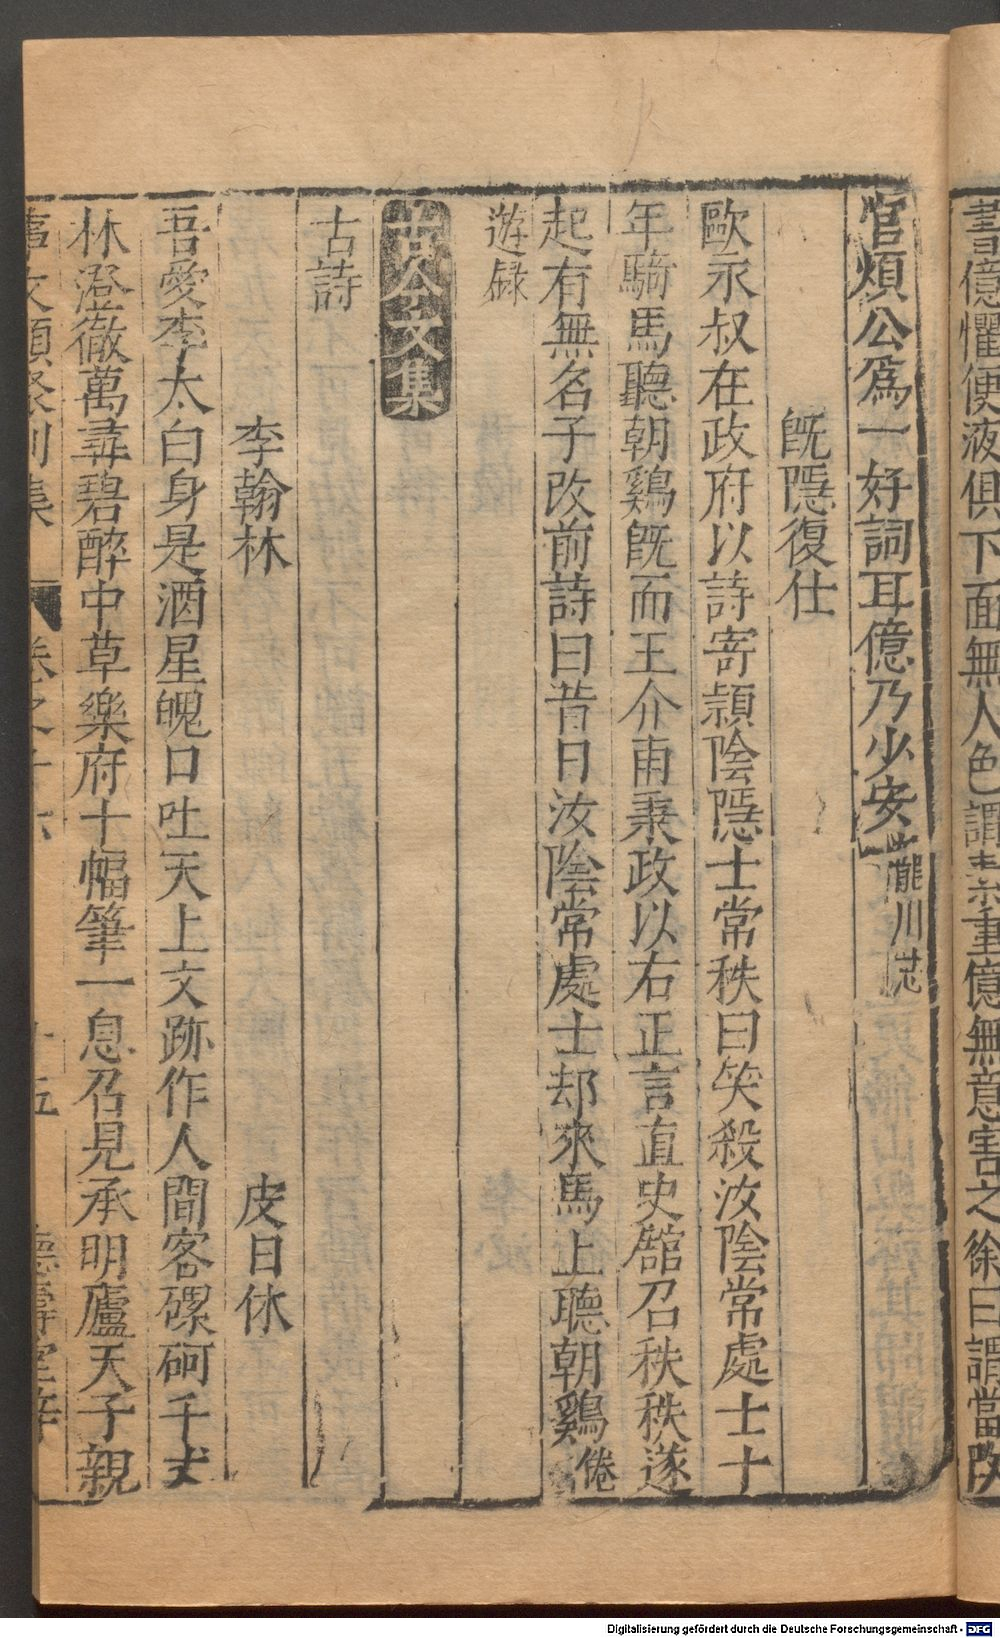 書億懼便液俱下面無人色謂素重億無意害之徐曰謂當改
官煩公爲一好詞耳億乃少安瀧川志
旣隱復仕
歐永叔在政府以詩寄頴陰隱士常秩曰笑殺汝陰常處士十
年騎馬聽朝鷄旣而王介甫秉政以右正言直史館召秩秩遂
起有無名子改前詩曰昔日汝陰常處士却來馬上聽朝鷄倦
遊録
古今文集
古詩
李翰林 皮日休
吾愛李太白身是酒星魄口吐天上文跡作人間客磥砢千丈
林澄徹萬尋碧醉中草樂府十幅筆一息召見承明廬天子親
事文類聚別集 卷之十六 十五 德壽堂梓
Digitalisierung gefördert durch die Deutsche Forschungsgemeinschaft - DFG